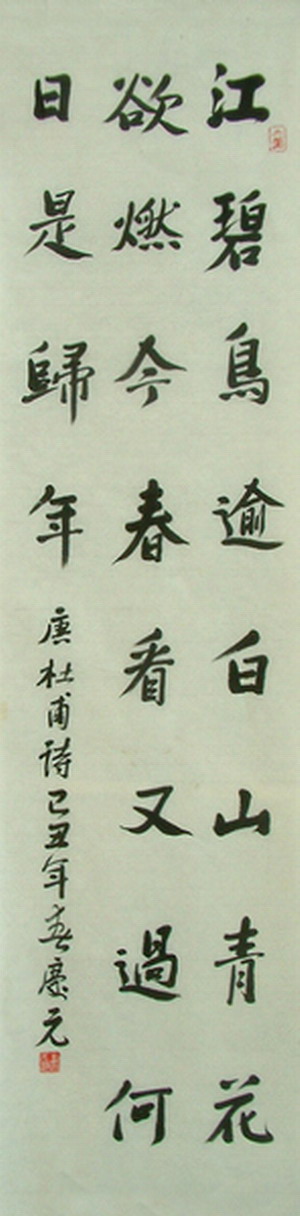 江碧鳥逾白山青花
欲燃今春看又過何
日是歸年
唐杜甫詩己丑年春廉元